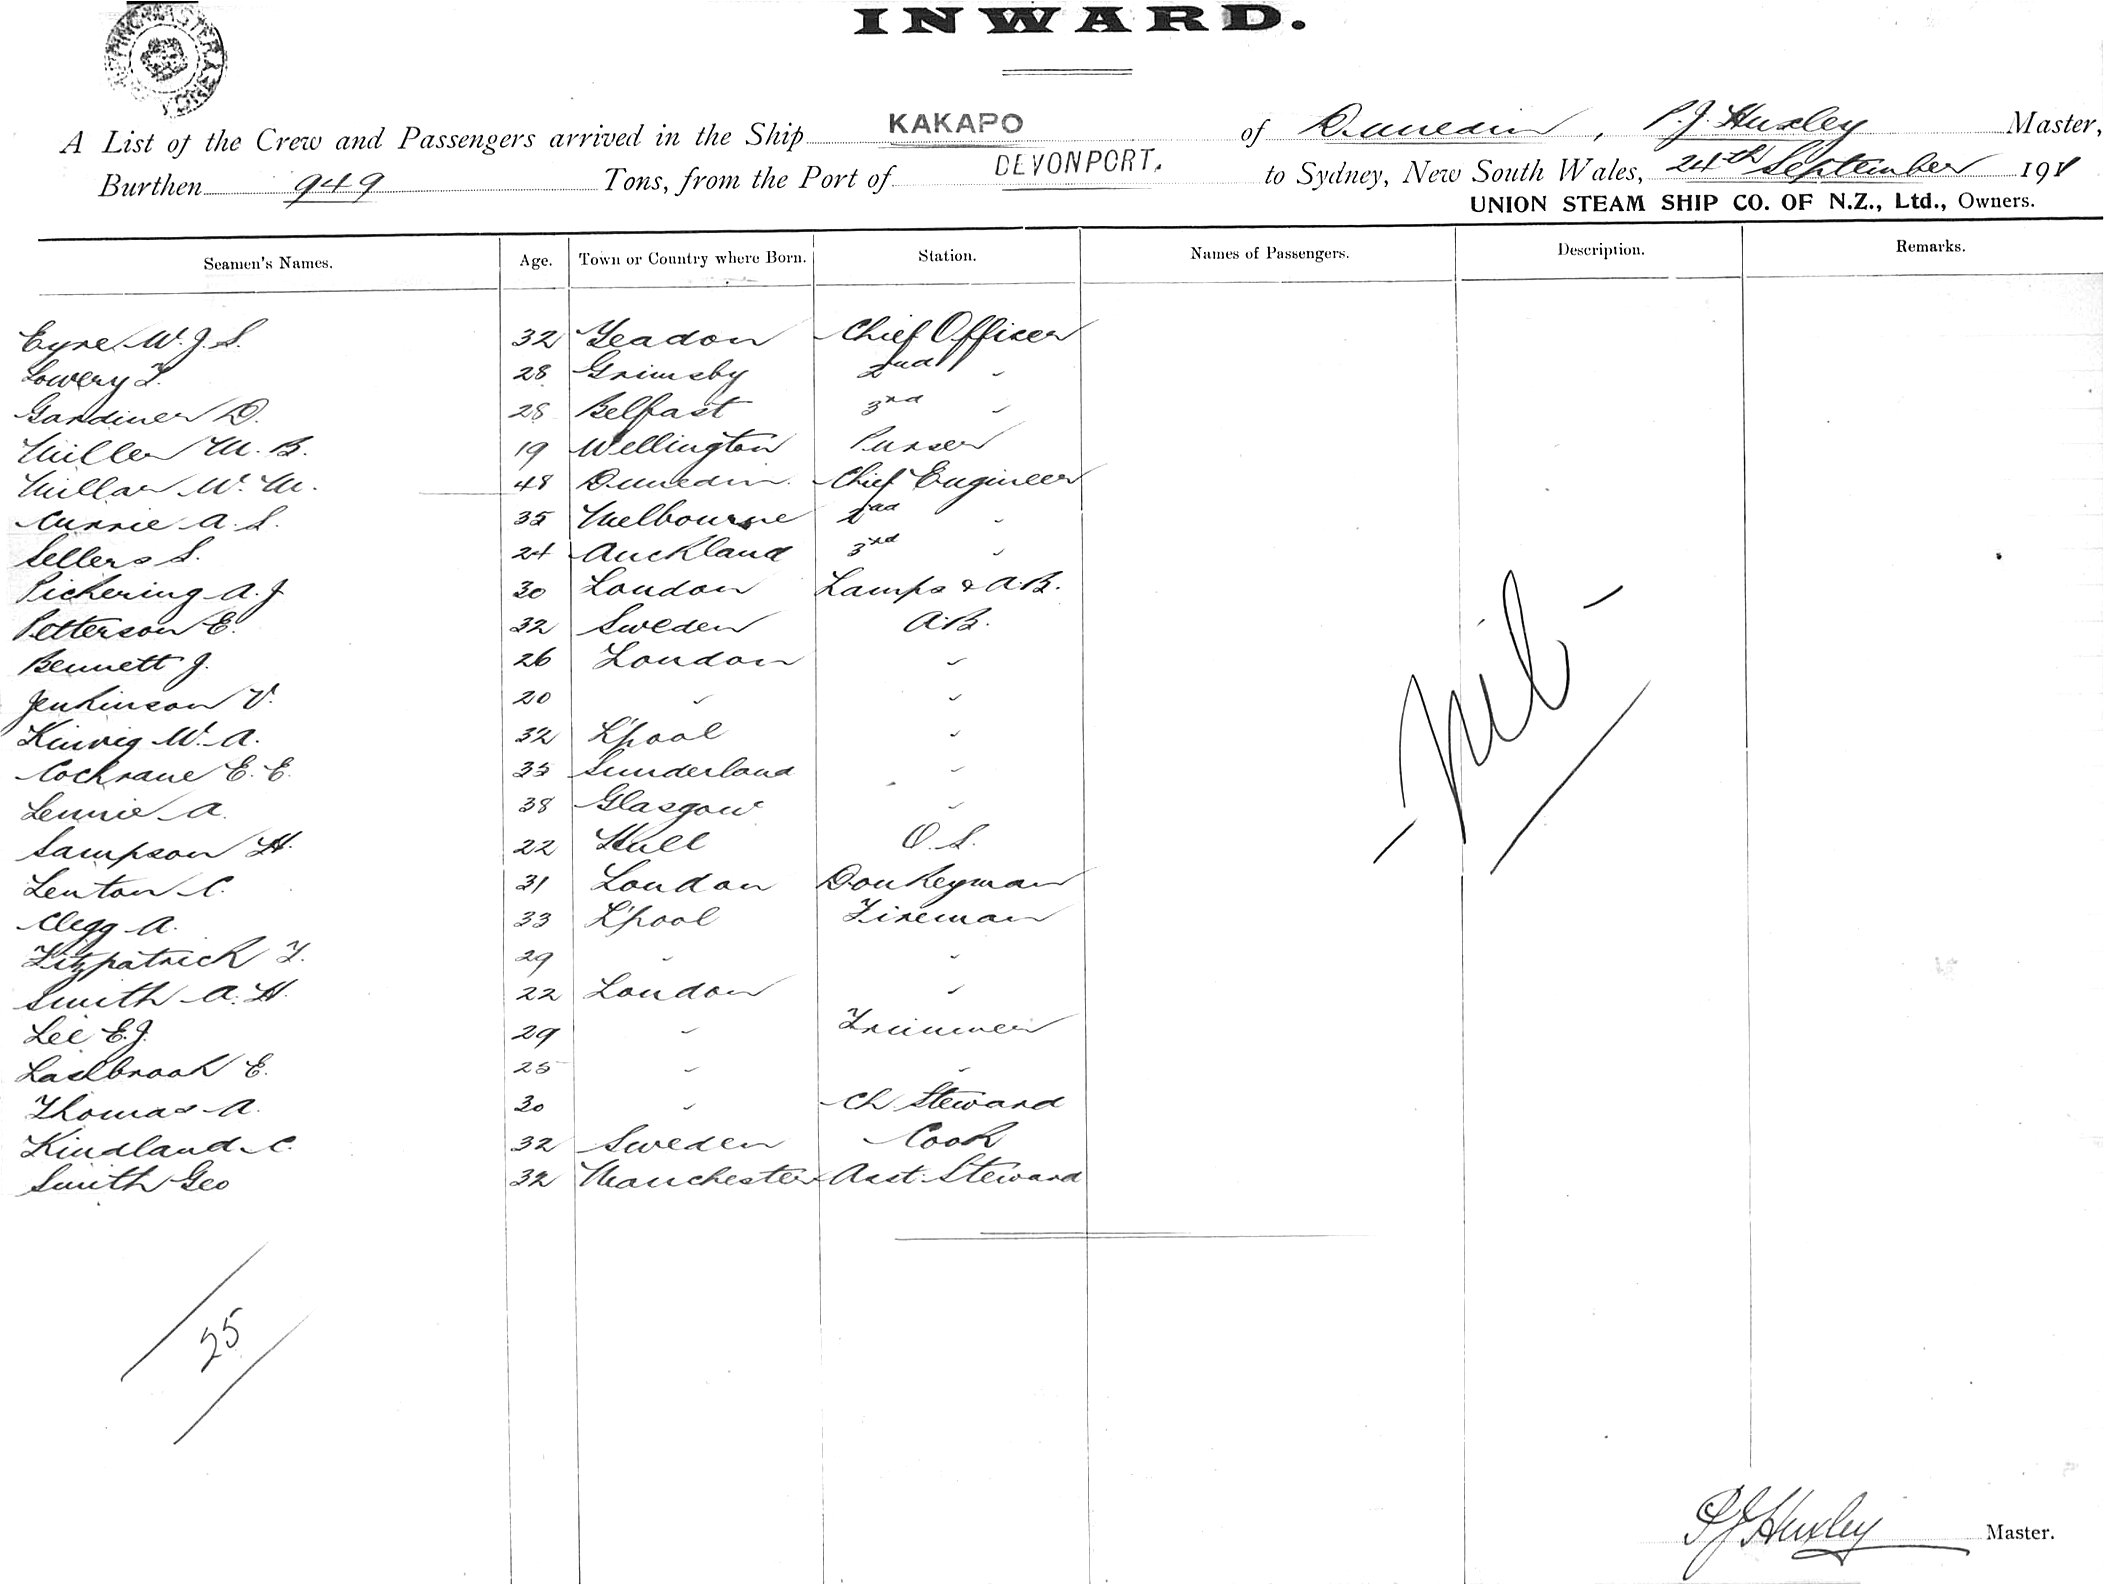 INWARD.
A List of the Crew and Passengers arrived in the Ship KAKAPO of Dunedin, P. J. Huxley Master,
Burthen 949 Tons, from the Port of DEVONPORT. to Sydney, New South Wales, 24th September 191
UNION STEAM SHIP CO. OF N.Z., Ltd., Owners.
Seamen's Names. Age. Town or Country where Born. Station. Names of Passengers. Description. Remarks.
Eyre W. J. S. 32 Yeadon Chief Officer
Lowery T. 28 Grimsby 2nd "
Gardiner D. 28 Belfast 3rd "
Miller M. B. 19 Wellington Purser
Millar W. M. 48 Dunedin Chief Engineer
Currie A. S. 35 Melbourne 2nd "
Sellers S. 24 Auckland 3rd "
Pickering A. J 30 London Lamps & A.B.
Petterson E. 32 Sweden A.B.
Bennett J. 26 London "
Jenkinson V. 20 " "
Kinvig W. A. 32 L'pool "
Cochrane E. E. 35 Sunderland "
Lennie A. 38 Glasgow "
Sampson H. 22 Hull O. S.
Lenton C. 31 London Donkeyman
Clegg A. 33 L'pool Fireman
Fitzpatrick T. 29 " "
Smith A. H. 22 London "
Lee E. J. 29 " Trimmer
Lashbrook E. 25 " "
Thomas A. 30 " Ch Steward
Kindland C. 32 Sweden Cook
Smith Geo 32 Manchester Asst. Steward
- Nil -
25
P J Huxley Master.